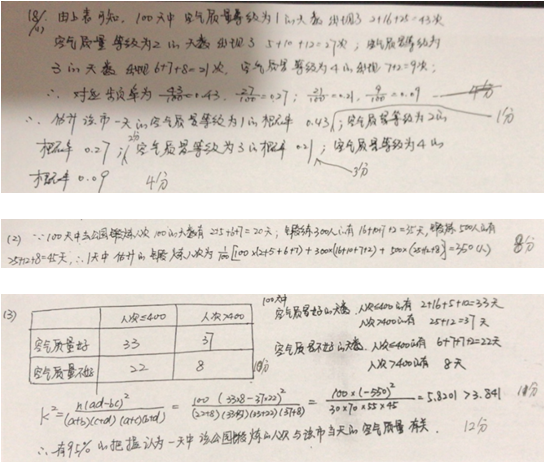 18/(1) 由上表可知, 100天中空气质量等级为1的天数出现了2+16+25=43次
空气质量等级为2的天数出现了5+10+12=27次; 空气质量等级为
3的天数出现6+7+8=21次, 空气质量等级为4的出现7+2=9次;
∴对应频率为 43/100=0.43, 27/100=0.27; 21/100=0.21, 9/100=0.09 4分
∴估计该市一天的空气质量等级为1的概率0.43; 空气质量等级为2的 1分
概率0.27; 2分 空气质量等级为3的概率0.21; 空气质量等级为4的
概率0.09 4分 3分
(2) ∵100天中去公园锻炼人次100的天数有2+5+6+7=20天; 锻炼300人的有16+10+7+2=35天, 锻炼500人的有
25+12+8=45天, ∴1天中估计的锻炼人次为 1/100[100×(2+5+6+7)+300×(16+10+7+2)+500×(25+12+8)]=350(人) 8分
(3) 人次≤400 人次>400
空气质量好 33 37
空气质量不好 22 8 10分
100天中
空气质量好的天数, 人次≤400的有 2+16+5+10=33天
人次>400的有 25+12=37天
空气质量不好的天数, 人次≤400的有 6+7+7+2=22天
人次>400的有 8天
K²=n(ad-bc)²/(a+b)(c+d)(a+c)(b+d) = 100(33×8-37×22)²/(22+8)(33+37)(33+22)(37+8) = 100×(-550)²/30×70×55×45 =5.8201>3.841 11分
∴有95%的把握认为一天中该公园锻炼的人次与该市当天的空气质量有关. 12分